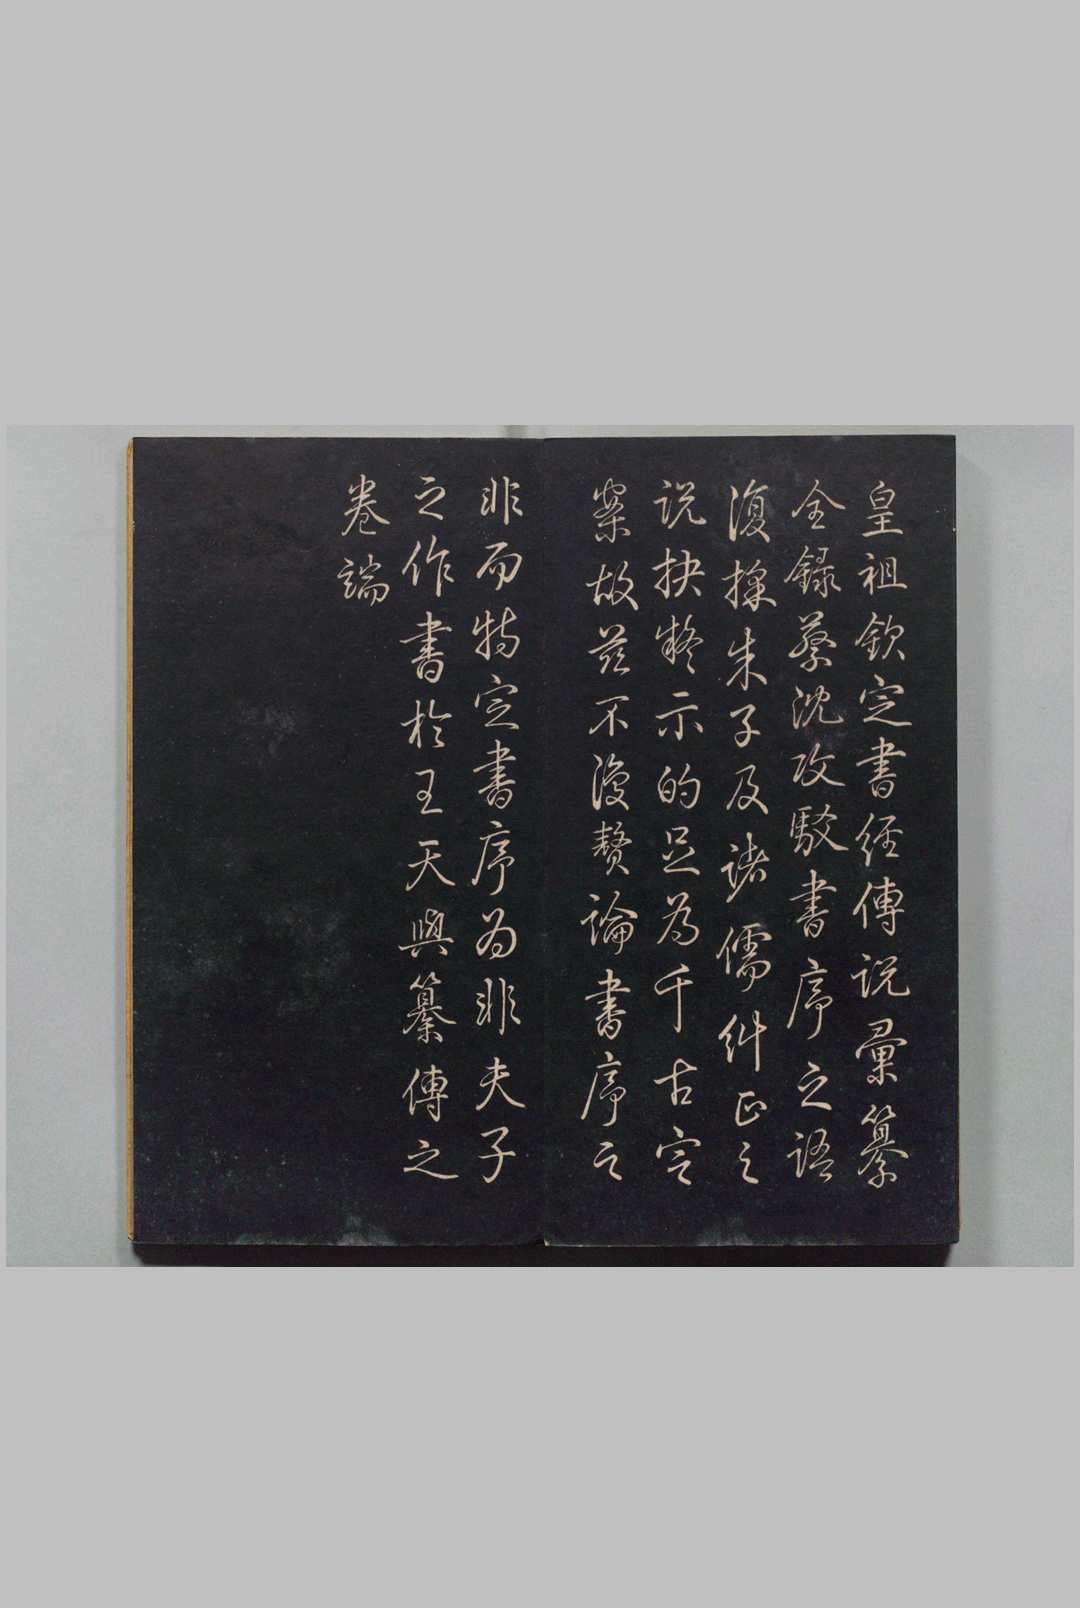 皇祖欽定書經傳說彙纂
全錄蔡沈攻駁書序之語
復採朱子及諸儒糾正之
說抉疑示的足為千古定
案故茲不復贅論書序之
非而特定書序為非夫子
之作書於王天與纂傳之
卷端